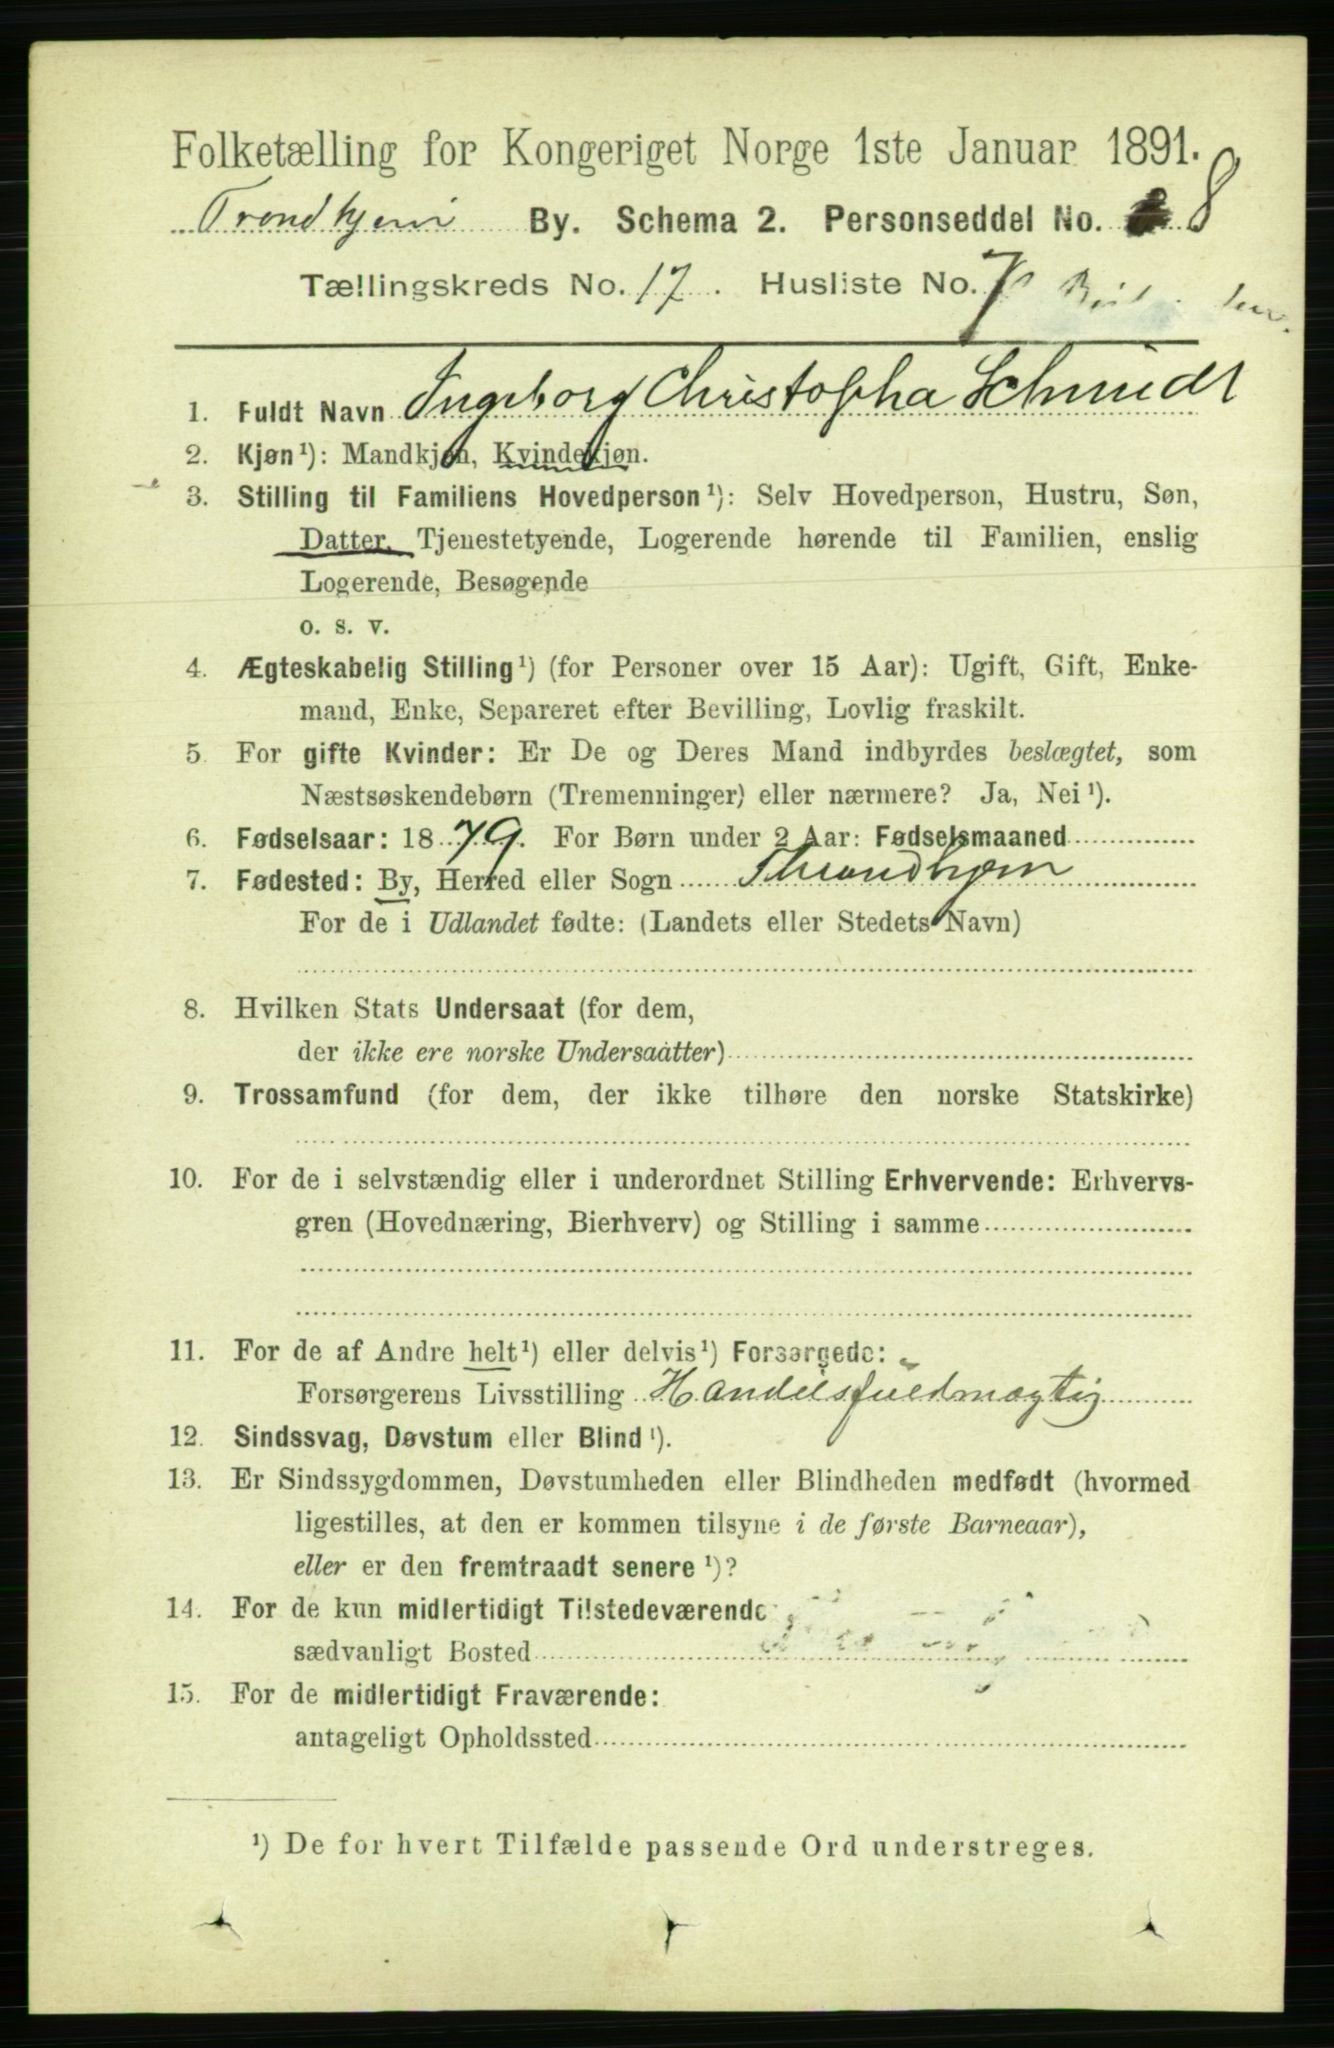 Folketælling for Kongeriget Norge 1ste Januar 1891.
Trondhjem By. Schema 2. Personseddel No. 8
Tællingskreds No. 17. Husliste No. 7
1. Fuldt Navn Ingeborg Christopha Schmidt
2. Kjøn¹): Mandkjøn, Kvindekjøn.
3. Stilling til Familiens Hovedperson¹): Selv Hovedperson, Hustru, Søn,
Datter, Tjenestetyende, Logerende hørende til Familien, enslig
Logerende, Besøgende
o. s. v.
4. Ægteskabelig Stilling¹) (for Personer over 15 Aar): Ugift, Gift, Enke-
mand, Enke, Separeret efter Bevilling, Lovlig fraskilt.
5. For gifte Kvinder: Er De og Deres Mand indbyrdes beslægtet, som
Næstsøskendebørn (Tremenninger) eller nærmere? Ja, Nei¹).
6. Fødselsaar: 1879. For Børn under 2 Aar: Fødselsmaaned
7. Fødested: By, Herred eller Sogn Throndhjem
For de i Udlandet fødte: (Landets eller Stedets Navn)
8. Hvilken Stats Undersaat (for dem,
der ikke ere norske Undersaatter)
9. Trossamfund (for dem, der ikke tilhøre den norske Statskirke)
10. For de i selvstændig eller i underordnet Stilling Erhvervende: Erhvervs-
gren (Hovednæring, Bierhverv) og Stilling i samme
11. For de af Andre helt¹) eller delvis¹) Forsørgede:
Forsørgerens Livsstilling Handelsfuldmægtig
12. Sindssvag, Døvstum eller Blind¹).
13. Er Sindssygdommen, Døvstumheden eller Blindheden medfødt (hvormed
ligestilles, at den er kommen tilsyne i de første Barneaar),
eller er den fremtraadt senere¹)?
14. For de kun midlertidigt Tilstedeværende
sædvanligt Bosted
15. For de midlertidigt Fraværende:
antageligt Opholdssted
¹) De for hvert Tilfælde passende Ord understreges.